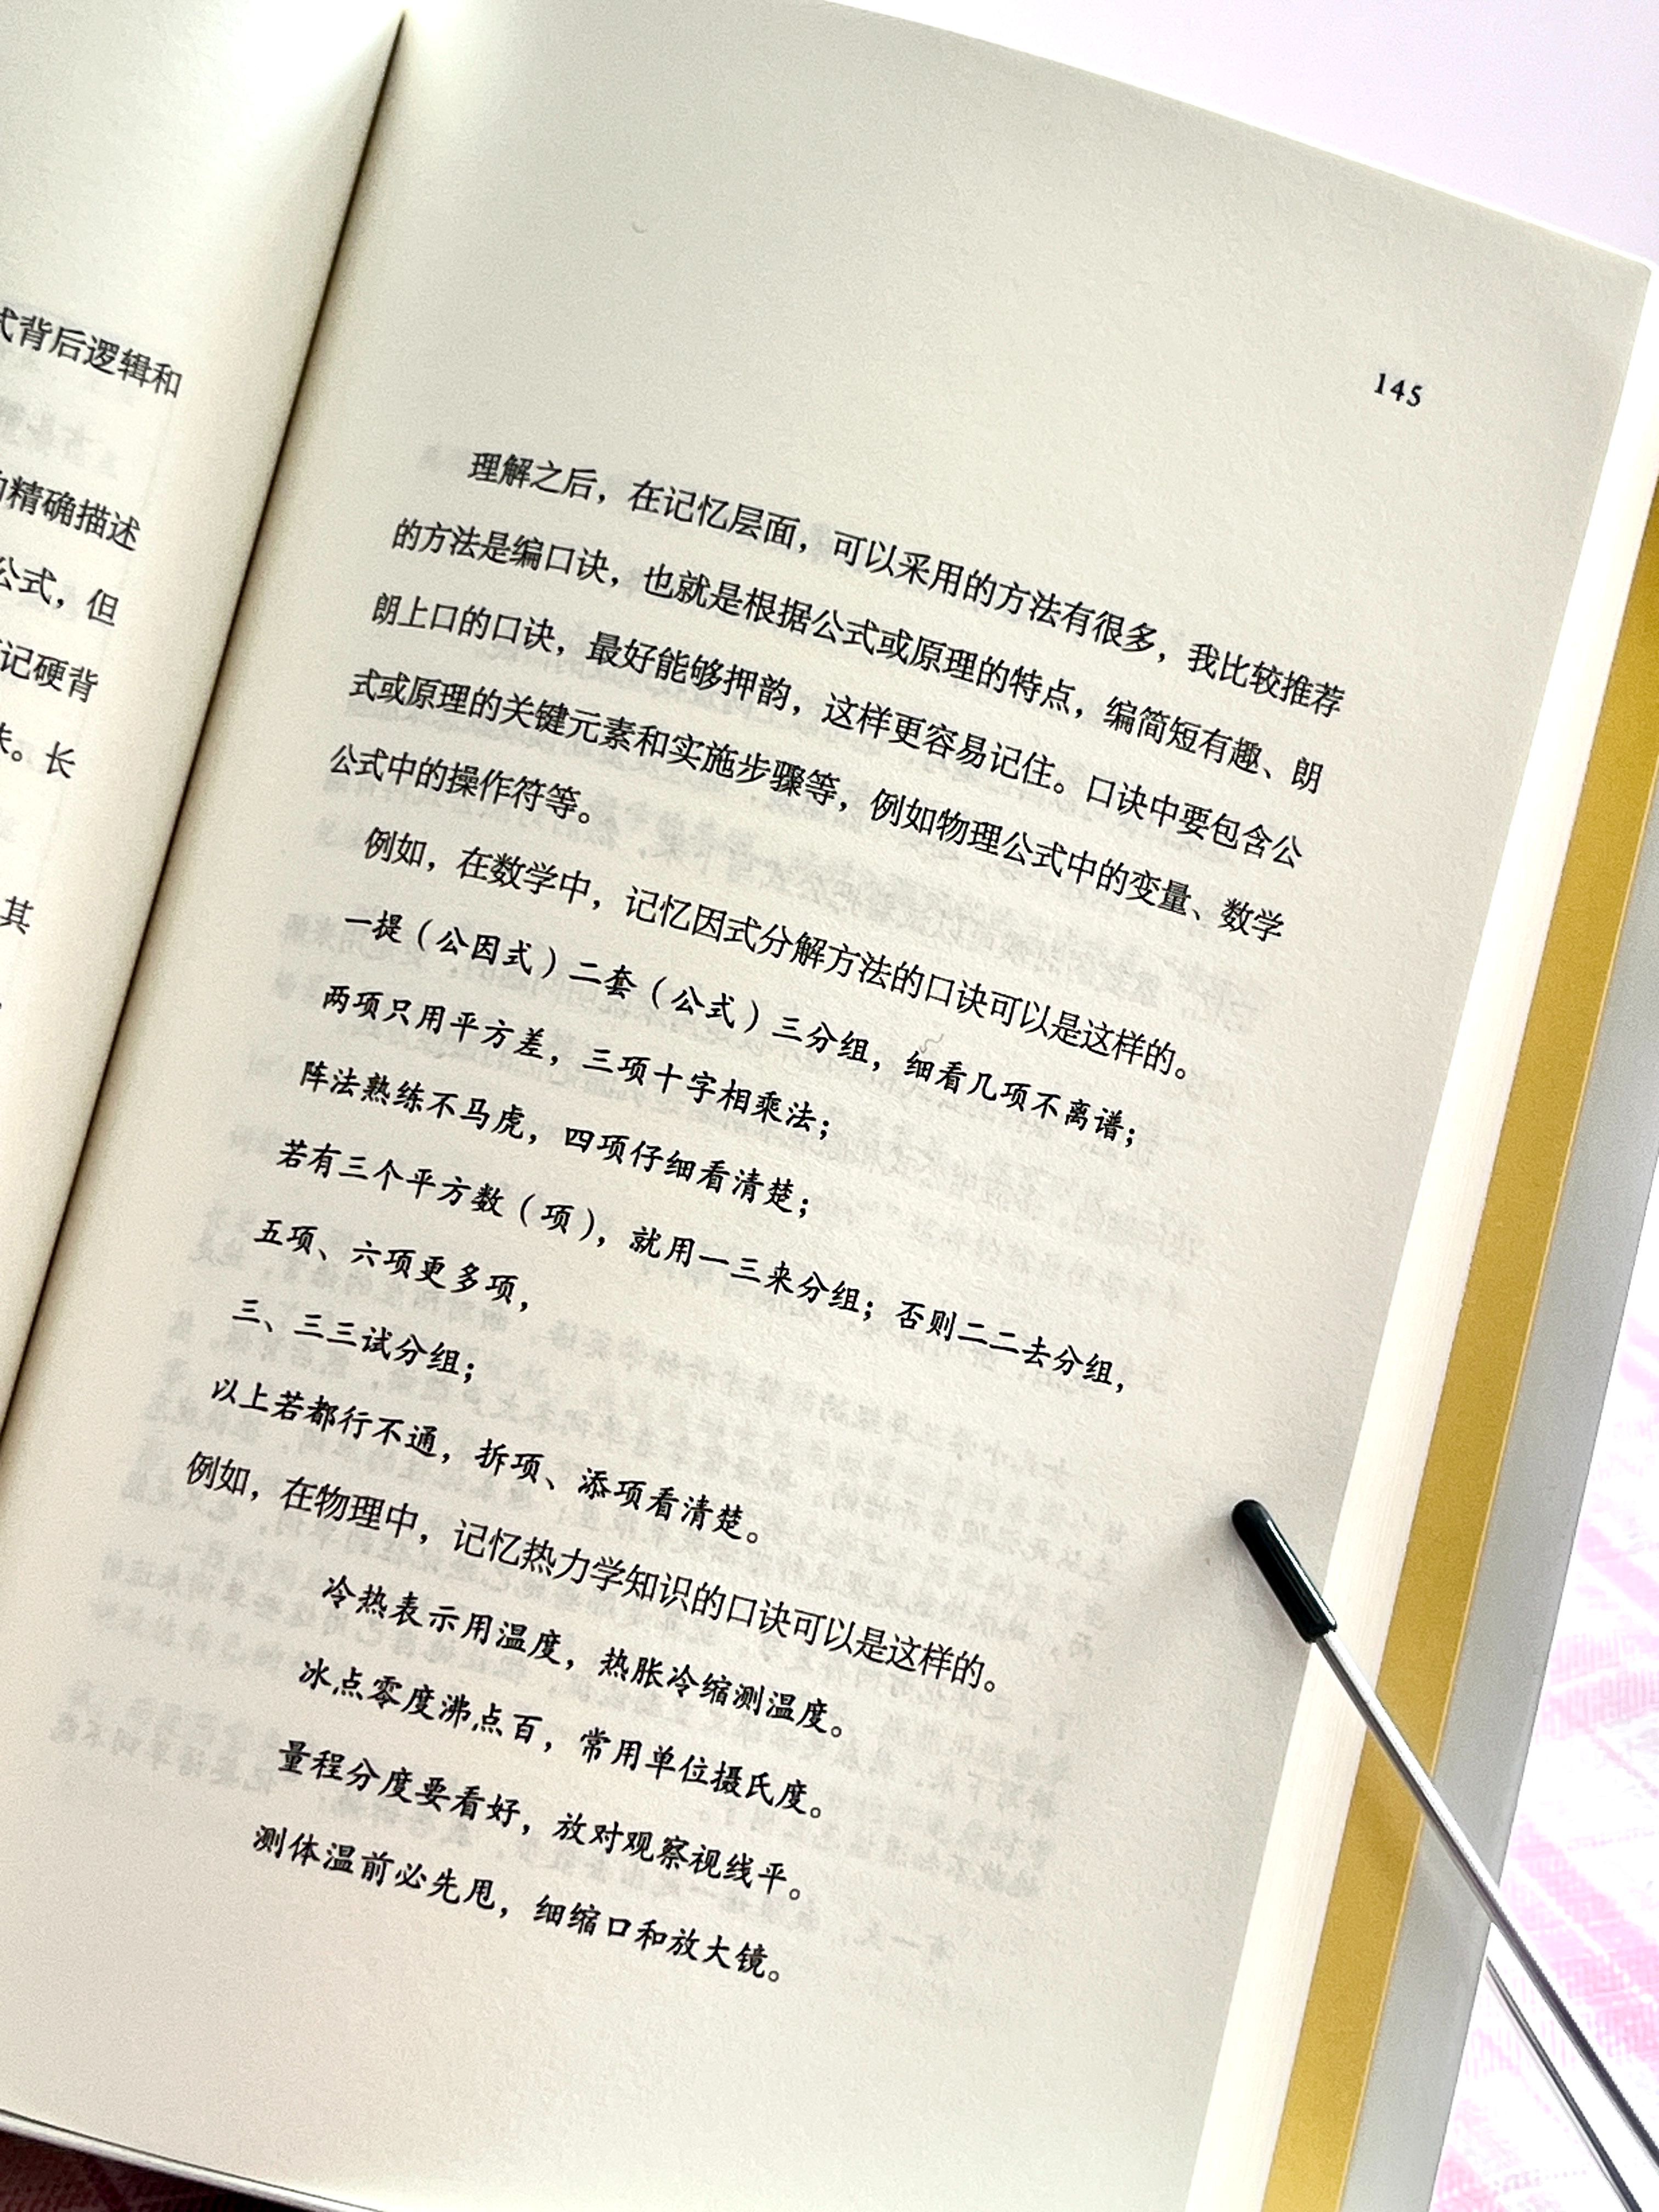 式背后逻辑和
精确描述
公式，但
记硬背
。长
其
145
理解之后，在记忆层面，可以采用的方法有很多，我比较推荐
的方法是编口诀，也就是根据公式或原理的特点，编简短有趣、朗
朗上口的口诀，最好能够押韵，这样更容易记住。口诀中要包含公
式或原理的关键元素和实施步骤等，例如物理公式中的变量、数学
公式中的操作符等。
例如，在数学中，记忆因式分解方法的口诀可以是这样的。
一提（公因式）二套（公式）三分组，细看几项不离谱；
两项只用平方差，三项十字相乘法；
阵法熟练不马虎，四项仔细看清楚；
若有三个平方数（项），就用一三来分组；否则二二去分组，
五项、六项更多项，
三、三三试分组；
以上若都行不通，拆项、添项看清楚。
例如，在物理中，记忆热力学知识的口诀可以是这样的。
冷热表示用温度，热胀冷缩测温度。
冰点零度沸点百，常用单位摄氏度。
量程分度要看好，放对观察视线平。
测体温前必先甩，细缩口和放大镜。